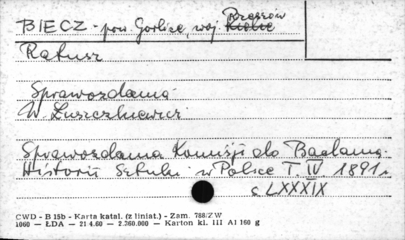 Rzeszów
BIECZ - pow Gorlice, woj. Kielce
Ratusz
Sprawozdania
W. Łuszczkiewicz
Sprawozdania Komisji do Badania
Historii Sztuki w Polsce T. IV. 1891 r.
s. LXXXIX
CWD - B 15b - Karta katal. (z liniat.) - Zam. 788/ZW
1060 — ŁDA — 21 4.60 — 2.360.000 — Karton kl. III A1 160 g